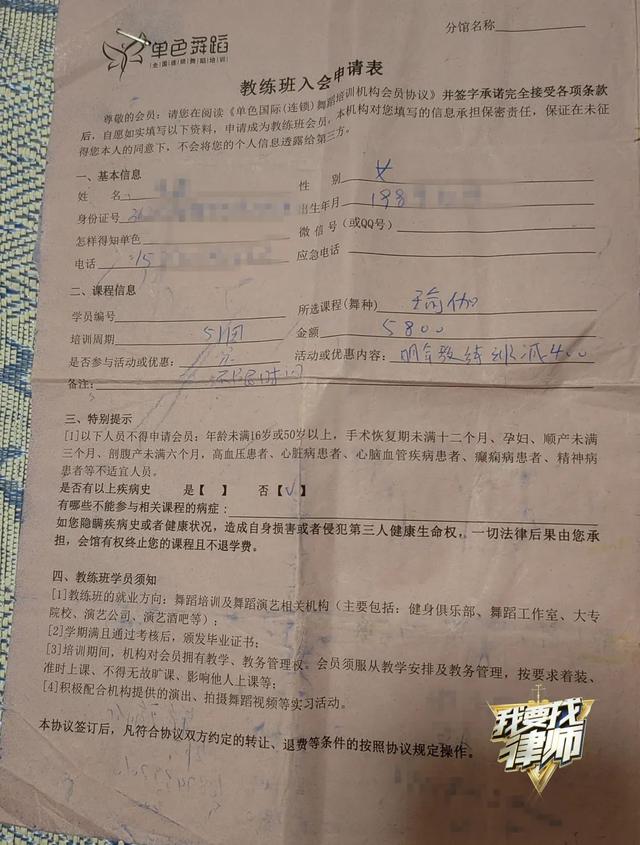 单色舞蹈
全国连锁舞蹈培训
分馆名称
教练班入会申请表
尊敬的会员：请您在阅读《单色国际(连锁)舞蹈培训机构会员协议》并签字承诺完全接受各项条款
后，自愿如实填写以下资料，申请成为教练班会员，本机构对您填写的信息承担保密责任，保证在未征
得您本人的同意下，不会将您的个人信息透露给第三方。
一、基本信息
姓 名
性 别 女
身份证号 36
出生年月 198
怎样得知单色
微信号(或QQ号)
电话 15
应急电话
二、课程信息
学员编号
所选课程(舞种) 瑜伽
培训周期
金额 5800
是否参与活动或优惠：
活动或优惠内容： 减400
备注： 时间
三、特别提示
[1]以下人员不得申请会员：年龄未满16岁或50岁以上，手术恢复期未满十二个月、孕妇、顺产未满
三个月、剖腹产未满六个月，高血压患者、心脏病患者、心脑血管疾病患者、癫痫病患者、精神病
患者等不适宜人员。
是否有以上疾病史 是【 】 否【√】
有哪些不能参与相关课程的病症：
如您隐瞒疾病史或者健康状况，造成自身损害或者侵犯第三人健康生命权，一切法律后果由您承
担，会馆有权终止您的课程且不退学费。
四、教练班学员须知
[1]教练班的就业方向：舞蹈培训及舞蹈演艺相关机构（主要包括：健身俱乐部、舞蹈工作室、大专
院校、演艺公司、演艺酒吧等）；
[2]学期满且通过考核后，颁发毕业证书；
[3]培训期间，机构对会员拥有教学、教务管理权。会员须服从教学安排及教务管理，按要求着装、
准时上课、不得无故旷课、影响他人上课等；
[4]积极配合机构提供的演出、拍摄舞蹈视频等实习活动。
本协议签订后，凡符合协议双方约定的转让、退费等条件的按照协议规定操作。
我要找
律师